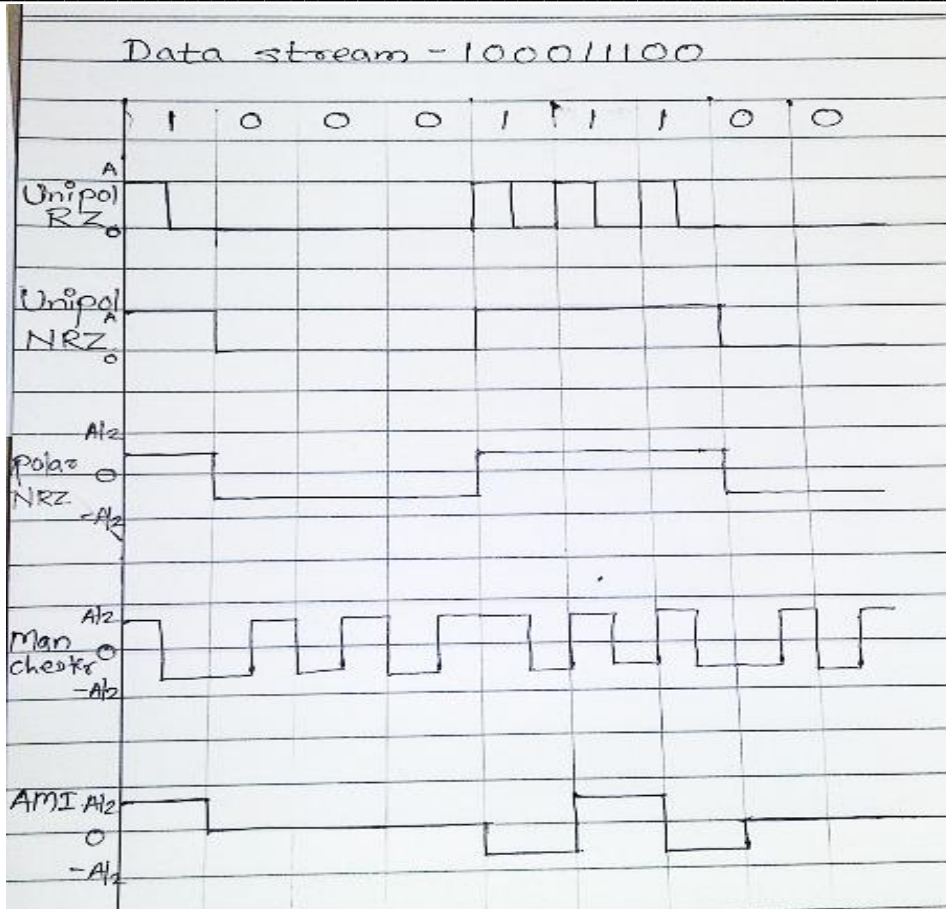 Data stream - 100011100
1 0 0 0 1 1 1 0 0
A
Unipol
RZ
0
Unipol
A
NRZ
0
A/2
Polar 0
NRZ
-A/2
A/2
Man 0
chestr
-A/2
AMI A/2
0
-A/2